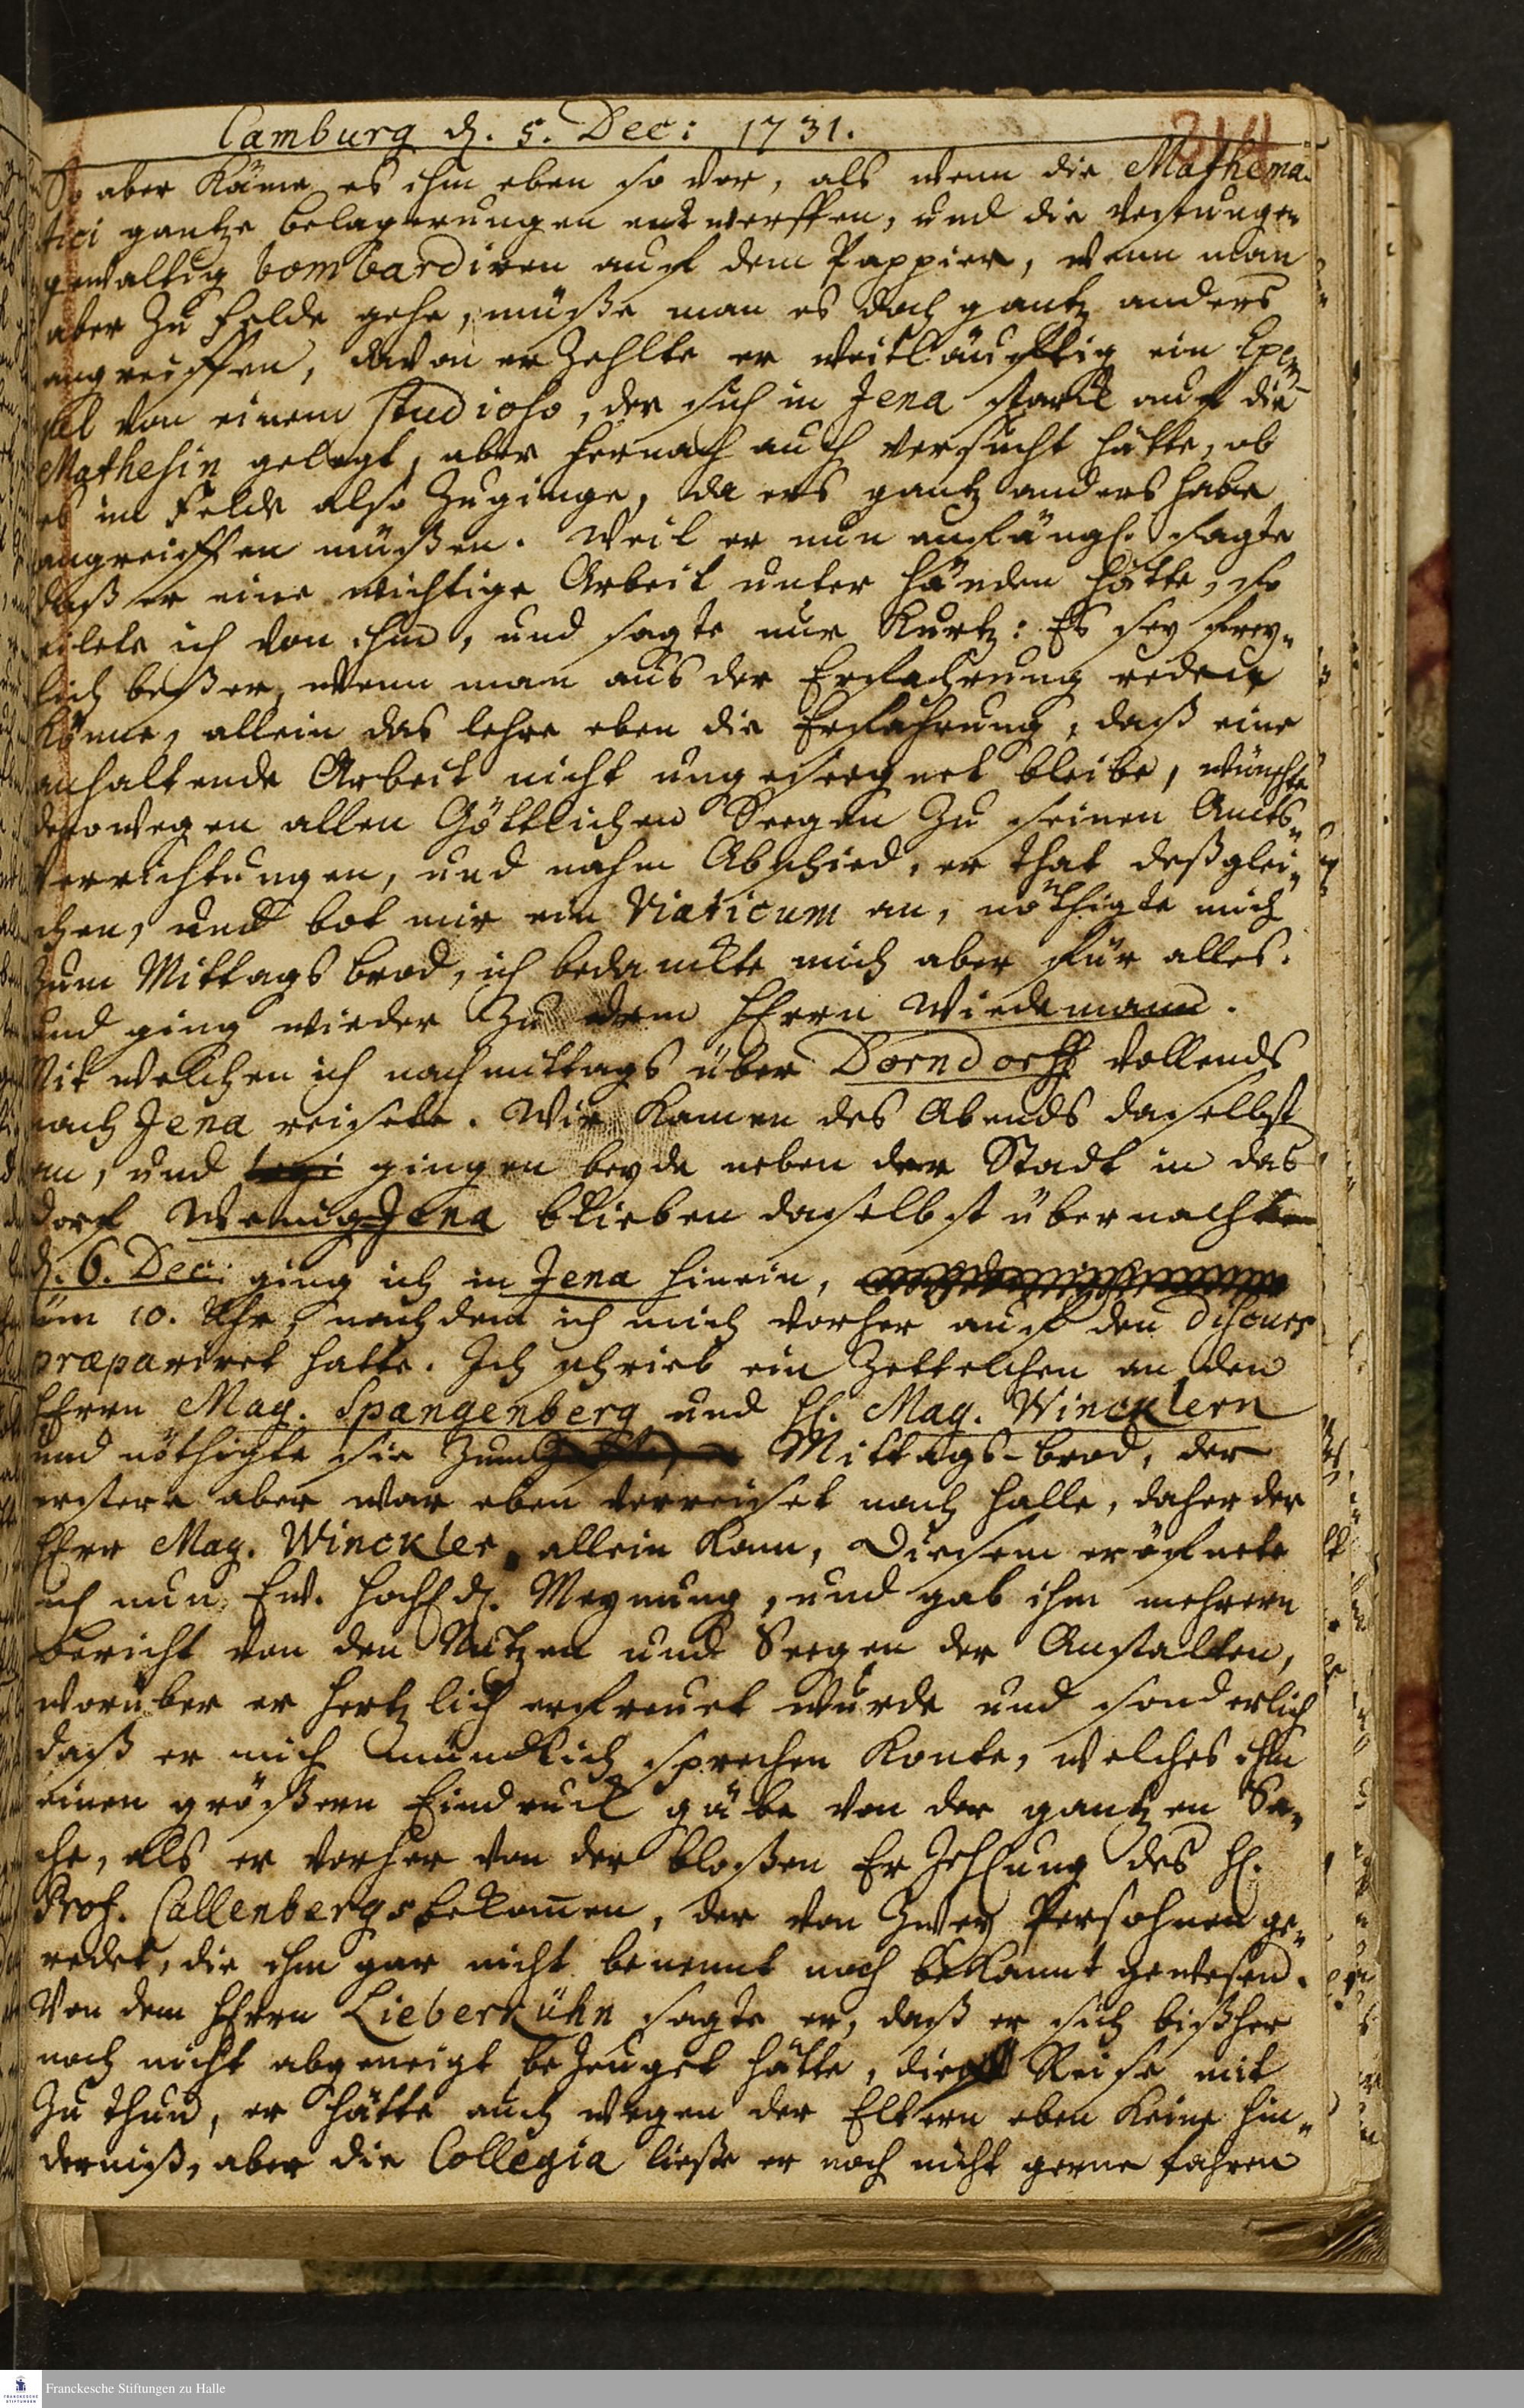 Camburg d. 5. Dec: 1731.
So aber käme es ihm eben so vor, als wenn die Mathema-
tici gantze belagerungen entwerffen, und die Vestungen
gewaltig bombardiren auf dem Pappier, wenn man
aber zu felde gehe, müße man es doch gantz anders
angreiffen, davon erzehlte er weitläufftig ein Exem-
pel von einem Studioso, der sich in Jena starck auf die
Mathesin gelegt, aber hernach auch versucht hätte, ob
es im felde also zuginge, da ers gantz anders habe
angreiffen müßen. Weil er nun anfängl. sagte
daß er eine wichtige Arbeit unter händen hätte, so
eilete ich von ihm, und sagte nur kurtz: Es sey frey-
lich beßer, wenn man aus der Erfahrung reden
könne, allein das lehre eben die Erfahrung, daß eine
anhaltende Arbeit nicht ungeseegnet bleibe, wünschte
derowegen allen Göttlichen Seegen zu seinen Amts-
verrichtungen, und nahm Abschied, er that deßglei-
chen, und bot mir ein Viaticum an, nöthigte mich
zum Mittags brod, ich bedanckte mich aber für alles.
und ging wieder zu dem Herrn Wiedemann.
Mit welchen ich nachmittags über Dorndorff vollends
nach Jena reisete. Wir kamen des Abends daselbst
an, und gingen beyde neben der Stadt in das
dorf Wenig-Jena blieben daselbst über nacht
d. 6. Dec: ging ich in Jena hinein,
um 10. Uhr, nachdem ich mich vorher auf den Discurs
præpariret hatte. Ich schrieb ein Zettelchen an den
Herrn Mag. Spangenberg und H. Mag. Wincklern
und nöthigte sie zum Mittags-brod, der
erstere aber war eben verreiset nach Halle, daher der
Herr Mag. Winckler allein kam, Diesem eröfnete
ich nun Ew. Hochd. Meynung, und gab ihm mehrern
bericht von den Nutzen und Seegen der Anstalten,
worüber er hertzlich erfreuet wurde und sonderlich
daß er mich mündlich sprechen konte, welches ihm
einen größern Eindruck gäbe von der gantzen Sa-
che, als er vorher von der bloßen Erzehlung des H.
Prof. Callenbergs bekommen, der von zwey Persohnen ge-
redet, die ihm gar nicht benennt noch bekannt gewesen.
Von dem Herrn Lieberkühn sagte er, daß er sich bißher
noch nicht abgeneigt bezeuget hätte, die Reise mit
zu thun, er hätte auch wegen der Eltern eben keine hin-
derniß, aber die Collegia ließe er noch nicht gerne fahren
Franckesche Stiftungen zu Halle